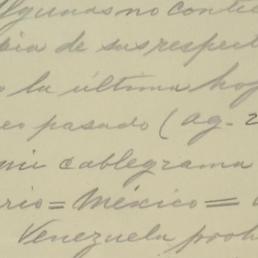 algunas no conti
pia de sus respect
o la última hoj
eo pasado (ag. 2
mi cablegrama
rio = México =
Venezuela proh